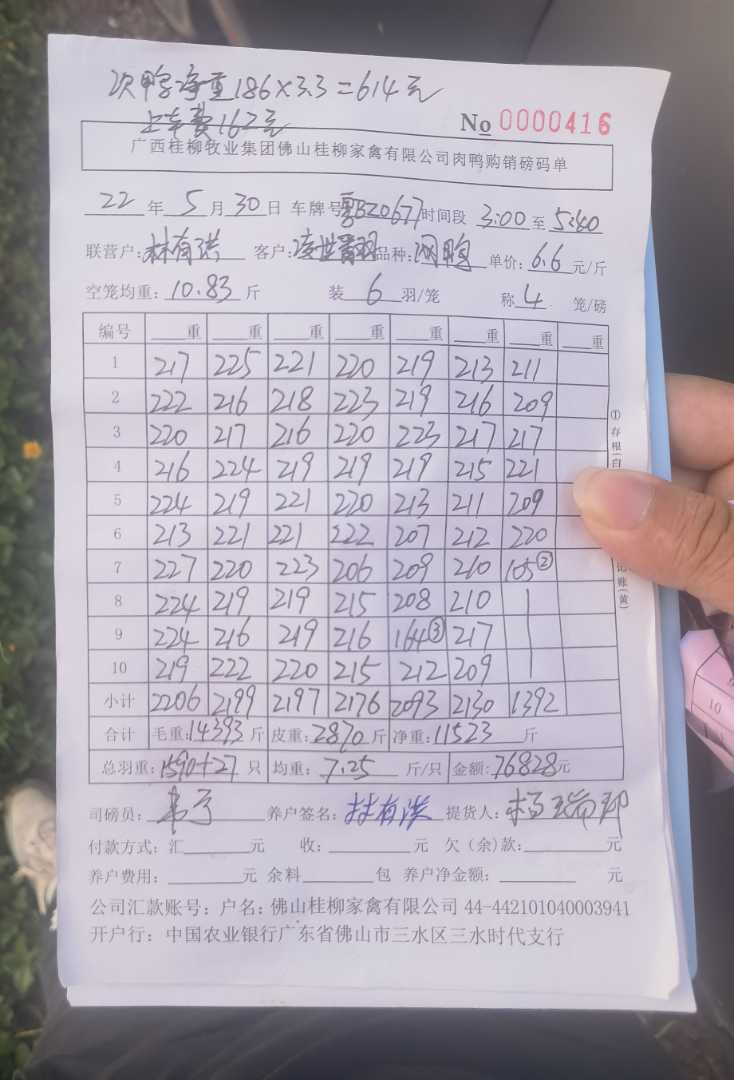 次鸭净重186×3.3=614元
上车费162元
No 0000416
广西桂柳牧业集团佛山桂柳家禽有限公司肉鸭购销磅码单
22年5月30日 车牌号粤BZ0677时间段 3:00至5:40
联营户:林有洪 客户: 品种: 肉鸭 单价: 6.6元/斤
空笼均重: 10.83斤 装6羽/笼 称4笼/磅
编号 重 重 重 重 重 重 重 重
1 217 225 221 220 219 213 211
2 222 216 218 223 219 216 209
3 220 217 216 220 223 217 217
4 216 224 219 219 219 215 221
5 224 219 221 220 213 211 209
6 213 221 221 222 207 212 220
7 227 220 223 206 209 210 105②
8 224 219 219 215 208 210
9 224 216 219 216 164③ 217
10 219 222 220 215 212 209
小计 2206 2199 2197 2176 2093 2130 1392
合计 毛重:14393斤 皮重:2870斤 净重:11523斤
总羽重:1590+27只 均重:7.25斤/只 金额:76828元
司磅员: 养户签名:林有洪 提货人:
付款方式:汇 元 收: 元 欠(余)款: 元
养户费用: 元 余料 包 养户净金额: 元
公司汇款账号:户名:佛山桂柳家禽有限公司 44-442101040003941
开户行:中国农业银行广东省佛山市三水区三水时代支行
①存根(白
记账(黄)
10